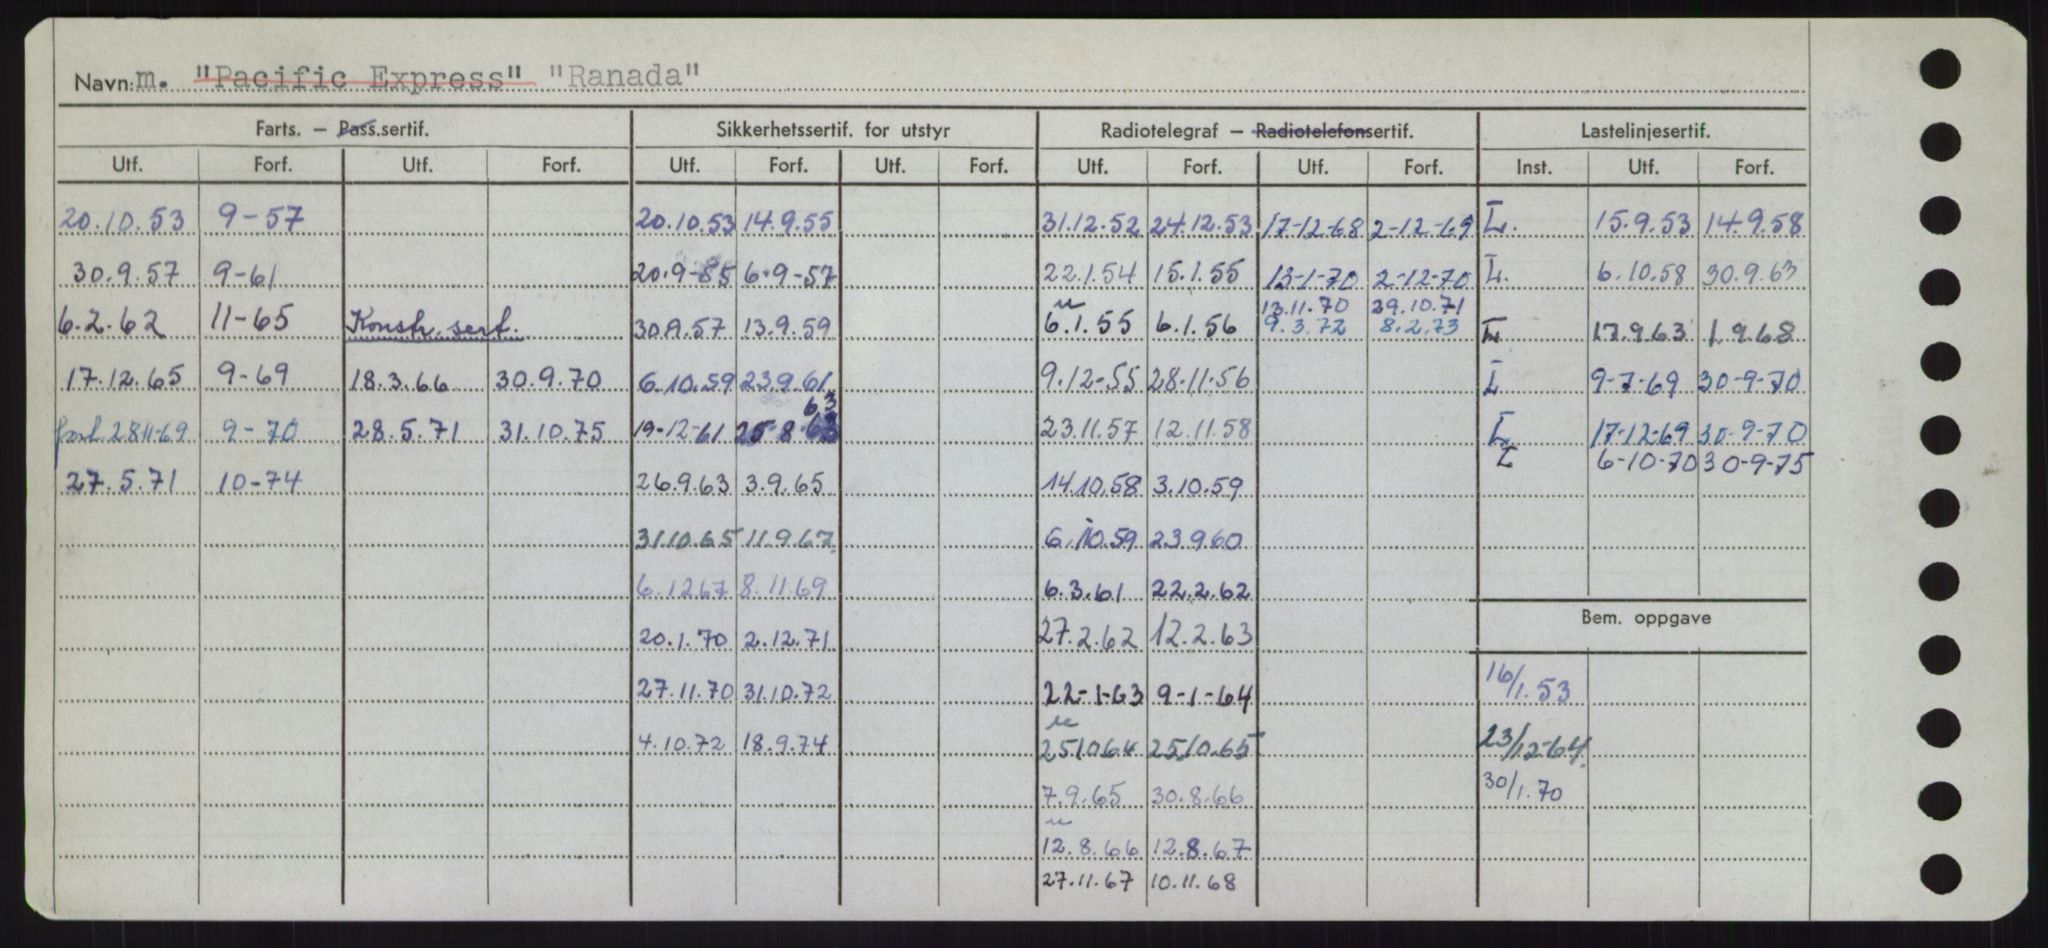 Navn: m. "Pacific Express" "Ranada"
Farts. – Pass.sertif. Sikkerhetssertif. for utstyr Radiotelegraf – Radiotelefonsertif. Lastelinjesertif.
Utf. Forf. Utf. Forf. Utf. Forf. Utf. Forf. Utf. Forf. Utf. Forf. Inst. Utf. Forf.
20.10.53 9-57 20.10.53 14.9.55 31.12.52 24.12.53 17-12-68 2-12-69 L. 15.9.53 14.9.58
30.9.57 9-61 20.9-55 6.9-57 22.1.54 15.1.55 13-1-70 2-12-70 L. 6.10.58 30.9.63
13.11.70 29.10.71
6.2.62 11-65 Konstr. sert. 30.9.57 13.9.59 6.1.55 6.1.56 9.3.72 8.2.73 L 17.9.63 1.9.68
17.12.65 9-69 18.3.66 30.9.70 6.10.59 23.9.61 9.12-55 28-11-56 L 9-7-69 30-9-70
63
forl. 28.11-69 9-70 28.5.71 31.10.75 19-12-61 25-8-63 23.11.57 12.11.58 L 17-12-69 30-9-70
L 6-10-70 30-9-75
27.5.71 10-74 26.9.63 3.9.65 14.10.58 3.10.59
31.10.65 11.9.67 6.10.59 23.9.60
6.12.67 8.11.69 6.3.61 22.2.62
Bem. oppgave
20.1.70 2.12.71 27.2.62 12.2.63
27.11.70 31.10.72 22-1-63 9-1-64 16/1.53
4.10.72 18.9.74 25.10.64 25.10.65 23/12-64.
7.9.65 30.8.66 30/1.70
12.8.66 12.8.67
27.11.67 10.11.68